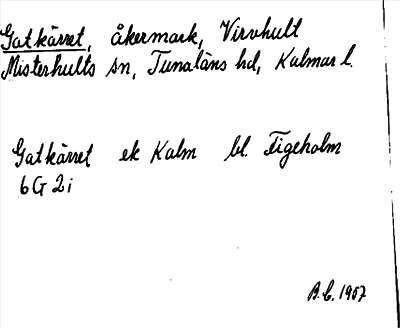 Gatkärret, åkermark, Virvhult
Misterhults sn, Tunaläns hd, Kalmar l.
Gatkärret ek Kalm bl. Figeholm
6G 2i
B.C. 1967